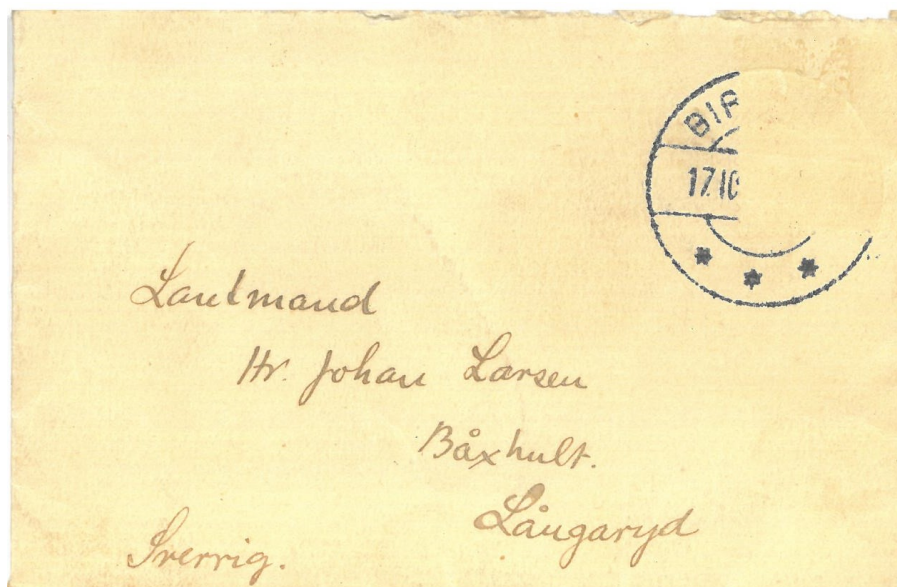 17.10
Lantmand
Hr. Johan Larsen
Båxhult.
Långaryd
Sverrig.